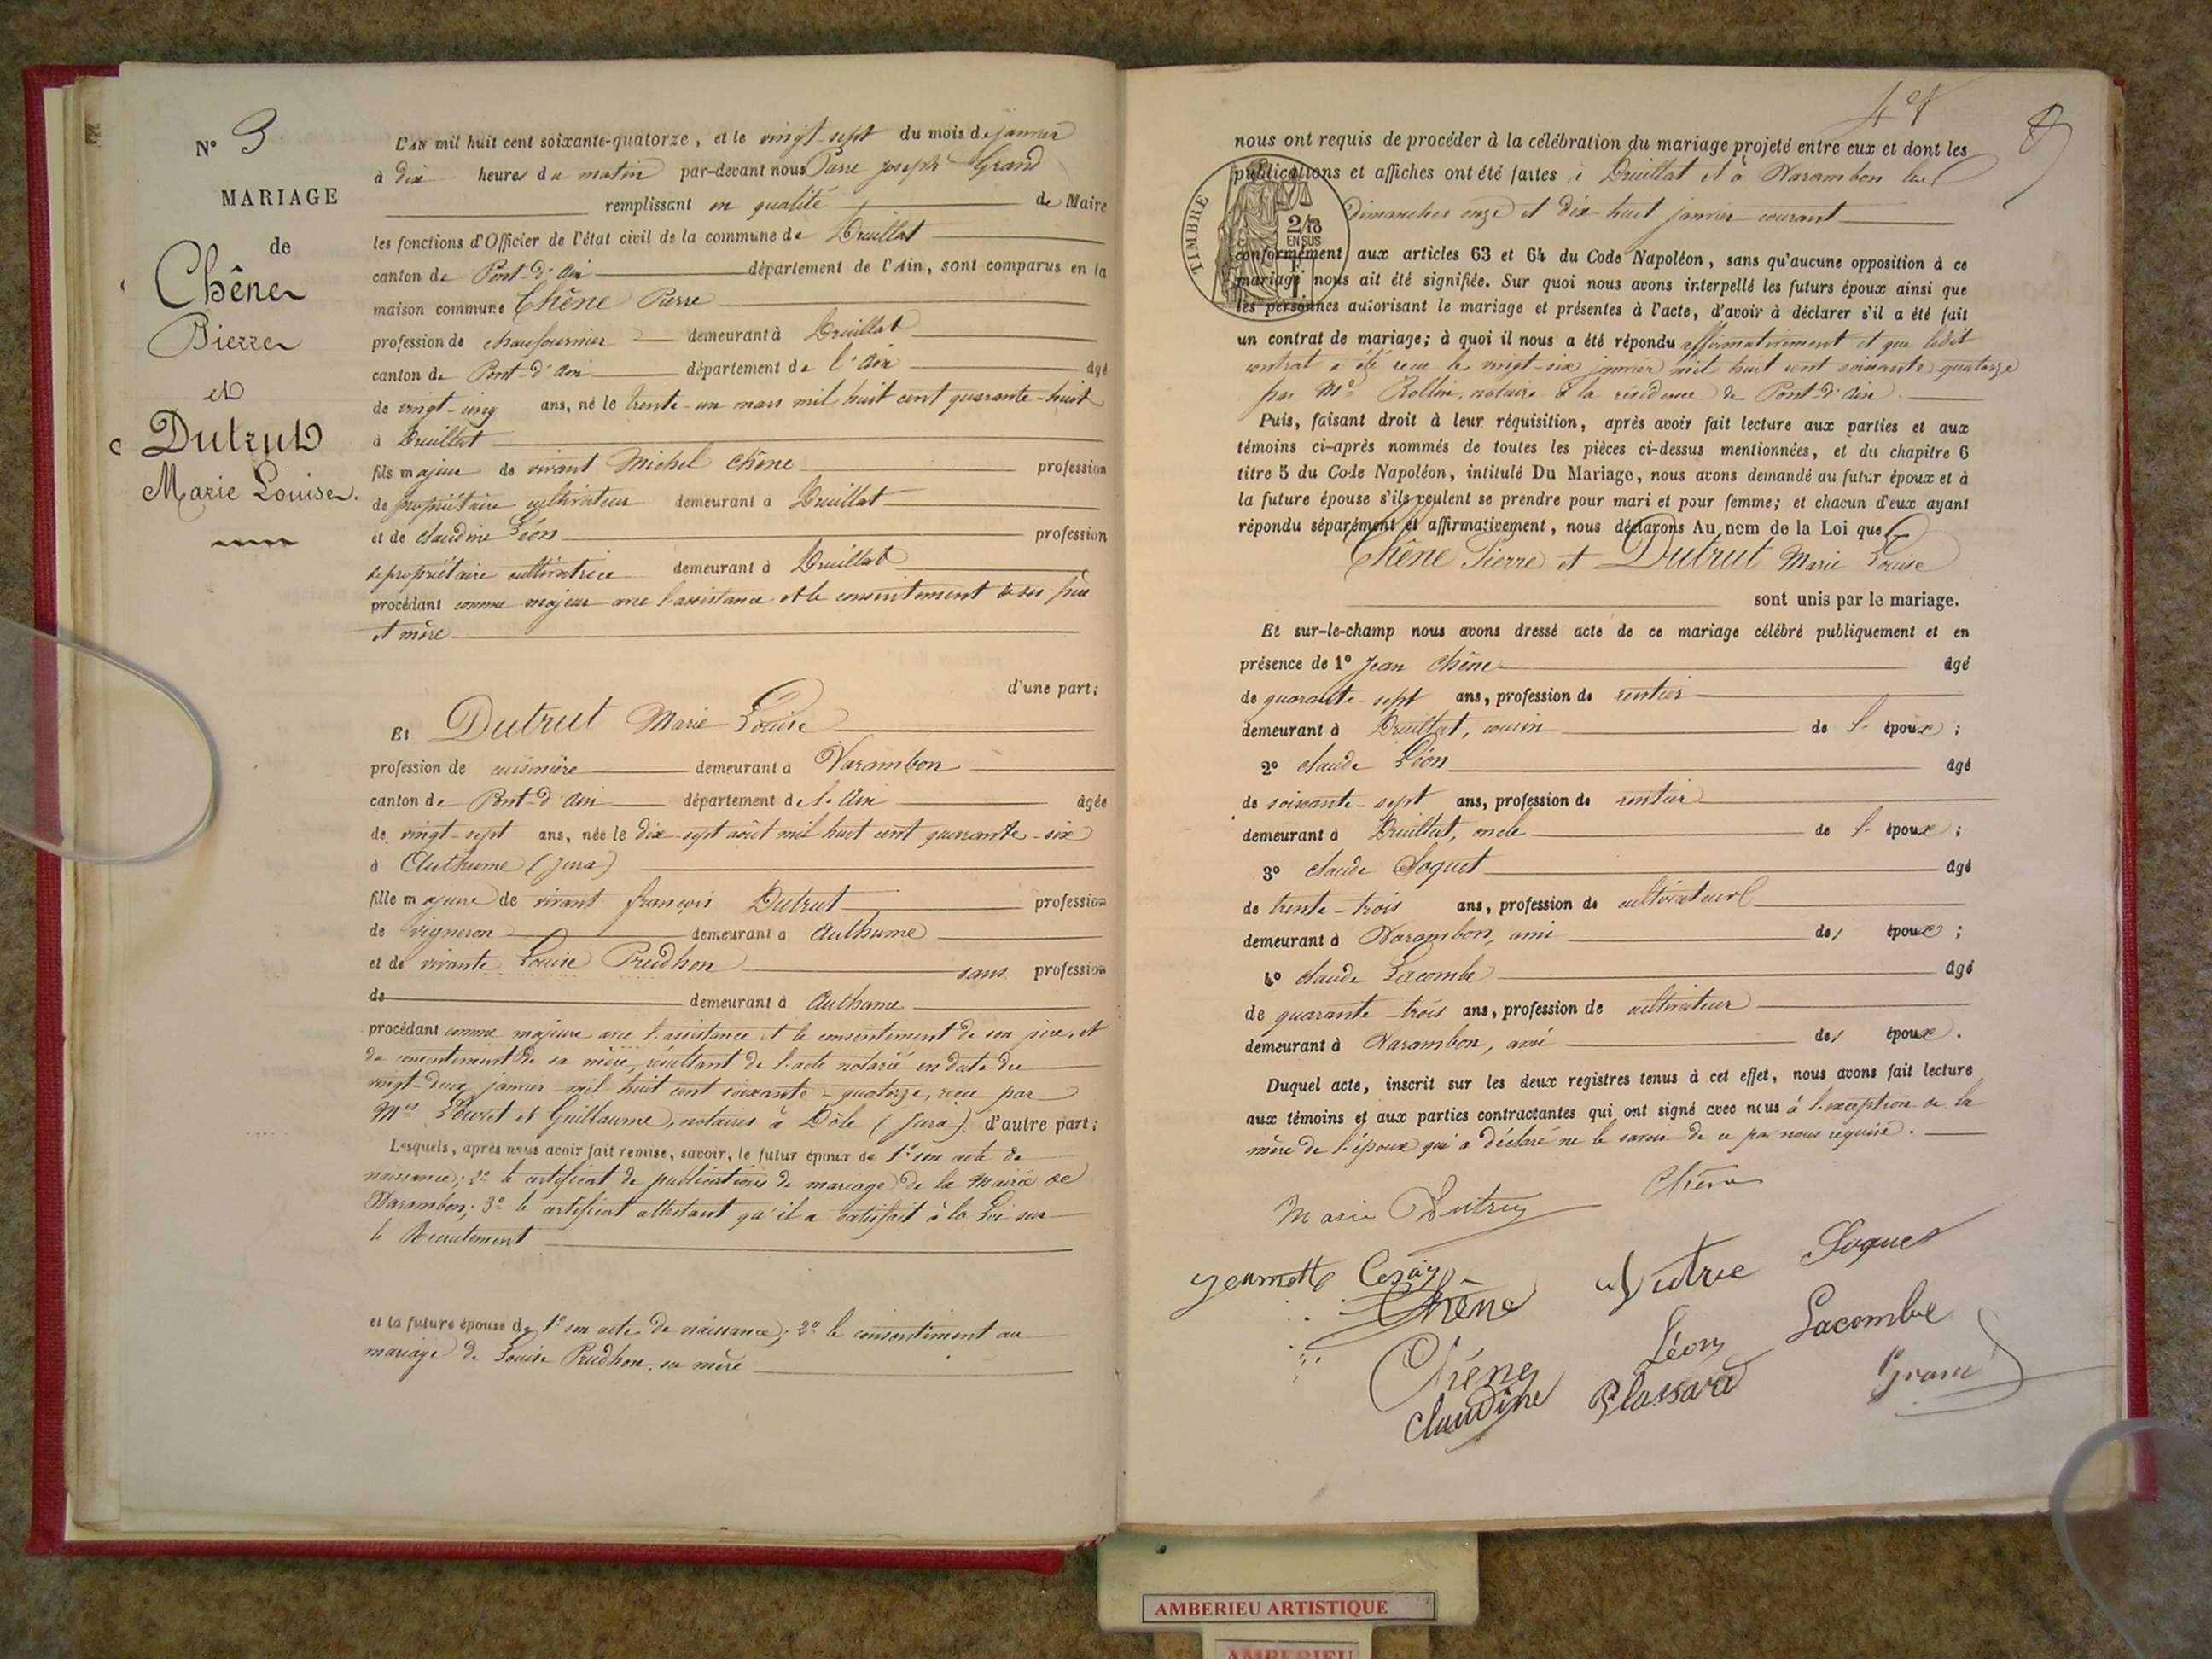 N° 3
MARIAGE
de
Chêne
Pierre
et
Dutrut
Marie Louise.
L'AN mil huit cent soixante-quatorze, et le vingt-sept du mois de janvier
à dix heures du matin par-devant nous Pierre Joseph Grand
remplissant en qualité de Maire
les fonctions d'Officier de l'état civil de la commune de Druillat
canton de Pont-d'Ain département de l'Ain, sont comparus en la
maison commune Chêne Pierre
profession de chaufournier demeurant à Druillat
canton de Pont-d'Ain département de l'Ain âgé
de vingt-cinq ans, né le trente-un mars mil huit cent quarante-huit
à Druillat
fils majeur de vivant Michel Chêne profession
de propriétaire cultivateur demeurant à Druillat
et de Claudine Léon profession
de propriétaire cultivatrice demeurant à Druillat
procédant comme majeur avec l'assistance et le consentement de ses père
et mère
d'une part;
Et Dutrut Marie Louise
profession de cuisinière demeurant à Varambon
canton de Pont-d'Ain département de l'Ain âgée
de vingt-sept ans, née le dix-sept août mil huit cent quarante-six
à Authume (Jura)
fille majeure de vivant François Dutrut profession
de vigneron demeurant à Authume
et de vivante Louise Prudhon sans profession
de demeurant à Authume
procédant comme majeure avec l'assistance et le consentement de son père, et
du consentement de sa mère, résultant de l'acte notarié en date du
vingt-deux janvier mil huit cent soixante-quatorze, reçu par
Mes et Guillaume, notaires à Dôle (Jura) d'autre part;
Lesquels, après nous avoir fait remise, savoir, le futur époux de 1° son acte de
naissance; 2° le certificat de publications de mariage de la Mairie de
Varambon; 3° le certificat attestant qu'il a satisfait à la Loi sur
le Recrutement
et la future épouse de 1° son acte de naissance; 2° le consentement au
mariage de Louise Prudhon, sa mère
8
nous ont requis de procéder à la célébration du mariage projeté entre eux et dont les
publications et affiches ont été faites à Druillat et à Varambon les
dimanches onze et dix huit janvier courant
TIMBRE
2/10
EN SUS
conformément aux articles 63 et 64 du Code Napoléon, sans qu'aucune opposition à ce
mariage nous ait été signifiée. Sur quoi nous avons interpellé les futurs époux ainsi que
les personnes autorisant le mariage et présentes à l'acte, d'avoir à déclarer s'il a été fait
un contrat de mariage; à quoi il nous a été répondu affirmativement et que ledit
contrat a été reçu le vingt-six janvier mil huit cent soixante-quatorze
par Me Rollin, notaire à la résidence de Pont-d'Ain.
Puis, faisant droit à leur réquisition, après avoir fait lecture aux parties et aux
témoins ci-après nommés de toutes les pièces ci-dessus mentionnées, et du chapitre 6
titre 5 du Code Napoléon, intitulé Du Mariage, nous avons demandé au futur époux et à
la future épouse s'ils veulent se prendre pour mari et pour femme; et chacun d'eux ayant
répondu séparément et affirmativement, nous déclarons Au nom de la Loi que
Chêne Pierre et Dutrut Marie Louise
sont unis par le mariage.
Et sur-le-champ nous avons dressé acte de ce mariage célébré publiquement et en
présence de 1° Jean Chêne âgé
de quarante-sept ans, profession de rentier
demeurant à Druillat, cousin de l'époux;
2° Claude Léon âgé
de soixante-sept ans, profession de rentier
demeurant à Druillat, oncle de l'époux;
3° Claude Soquet âgé
de trente-trois ans, profession de cultivateur
demeurant à Varambon, ami des époux;
4° Claude Lacombe âgé
de quarante-trois ans, profession de cultivateur
demeurant à Varambon, ami des époux.
Duquel acte, inscrit sur les deux registres tenus à cet effet, nous avons fait lecture
aux témoins et aux parties contractantes qui ont signé avec nous à l'exception de la
mère de l'époux qui a déclaré ne le savoir de ce par nous requise.
Marie Dutruy Chêne
Chêne Dutrue Soquet
Chêne Léon Lacombe
Claudine Plassard Grand
AMBERIEU ARTISTIQUE
AMBERIEU